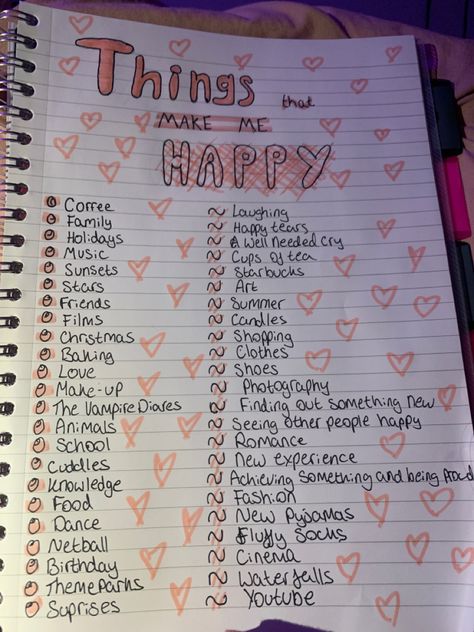 Things that
MAKE ME
HAPPY
Coffee
Family
Holidays
Music
Sunsets
Stars
Friends
Films
Christmas
Baking
Love
Make-up
The Vampire Diares
Animals
School
Cuddles
Knowledge
Food
Dance
Netball
Birthday
Theme Parks
Suprises
Laughing
Happy tears
A well needed cry
Cups of tea
Starbucks
Art
Summer
Candles
Shopping
Clothes
Shoes
Photography
Finding out something new
Seeing other people happy
Romance
New experience
Achieving something and being proud
Fashion
New Pyjamas
Fluffy Socks
Cinema
Waterfalls
Youtube